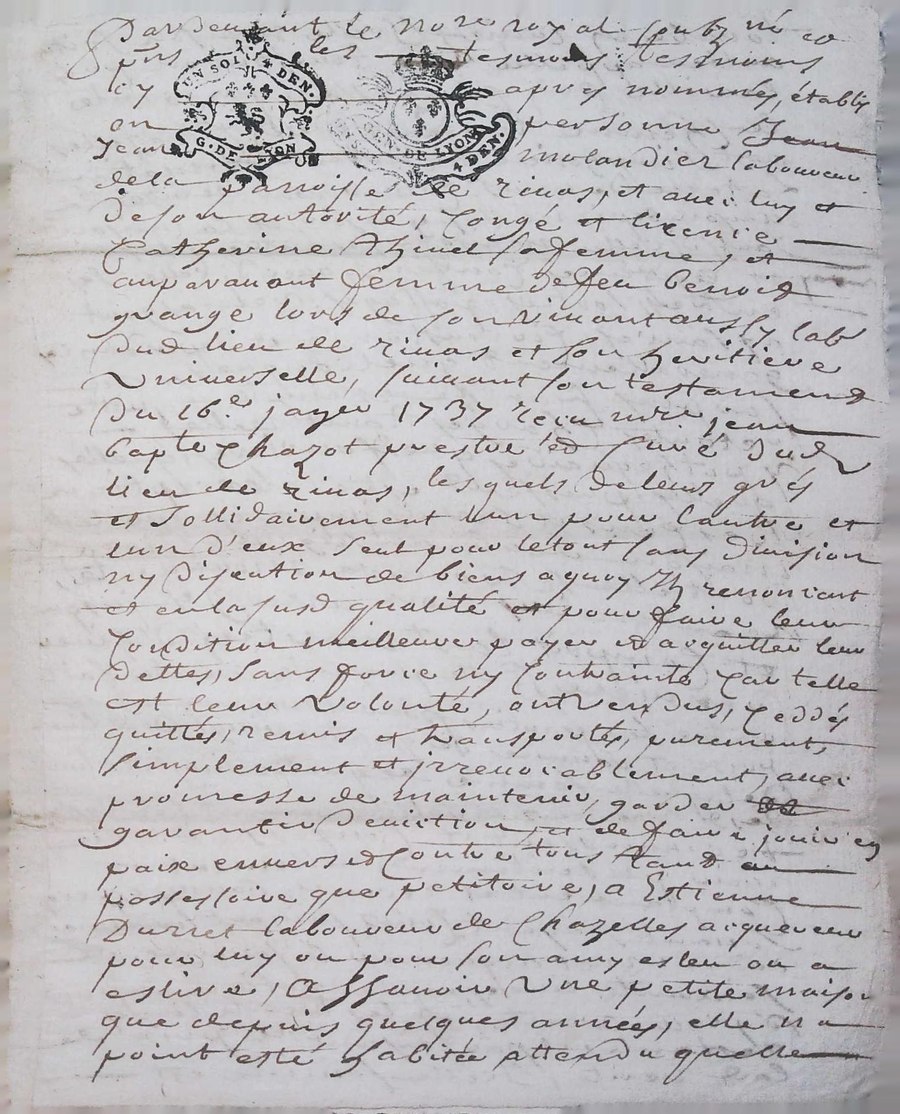 Pardevant le no.re royal soub.né et
p̃ns les tesmoins
UN SOL 4 DEN.
G. DE LYON
GEN. DE LYON
4 DEN.
cy apres nommés, établis
en personne Jean
Jean molandier laboureur
dela parroisse de rivas, et avec luy et
de son autorité, congé et licence
Catherine thivel sa femme, et
auparavant femme de feu benoist
grange lors de son vivant aussy lab.
dud lieu de rivas et son heritiere
Universelle, suivant son testament
du 16.e janver 1737 receu m.re jean
bapte chazot prestre et Curé dud
lieu de rivas, les quels de leurs grés
et sollidairement lun pour lautre et
lun d'eux seul pour le tout sans division
ny discution de biens aquoy Ils renoncent
et en lasusd qualité et pour faire leur
condition meilleure payer et acquitter leur
dettes, sans force ny contrainte car telle
est leur volonté, ont vendus, ceddés
quittés, remis et transportés, purement,
simplement et irrevocablement, avec
promesse de maintenir, garder
garantir deviction, et de faire jouir en
paix envers et contre tous tant au
possessoire que petitoire, a Estienne
Durret laboureur de Chazelles acquereur
pour luy ou pour son amy esleu ou a
eslire, Assavoir Une petite maison
que depuis quelques années, elle na
point esté habitée attendu quelle